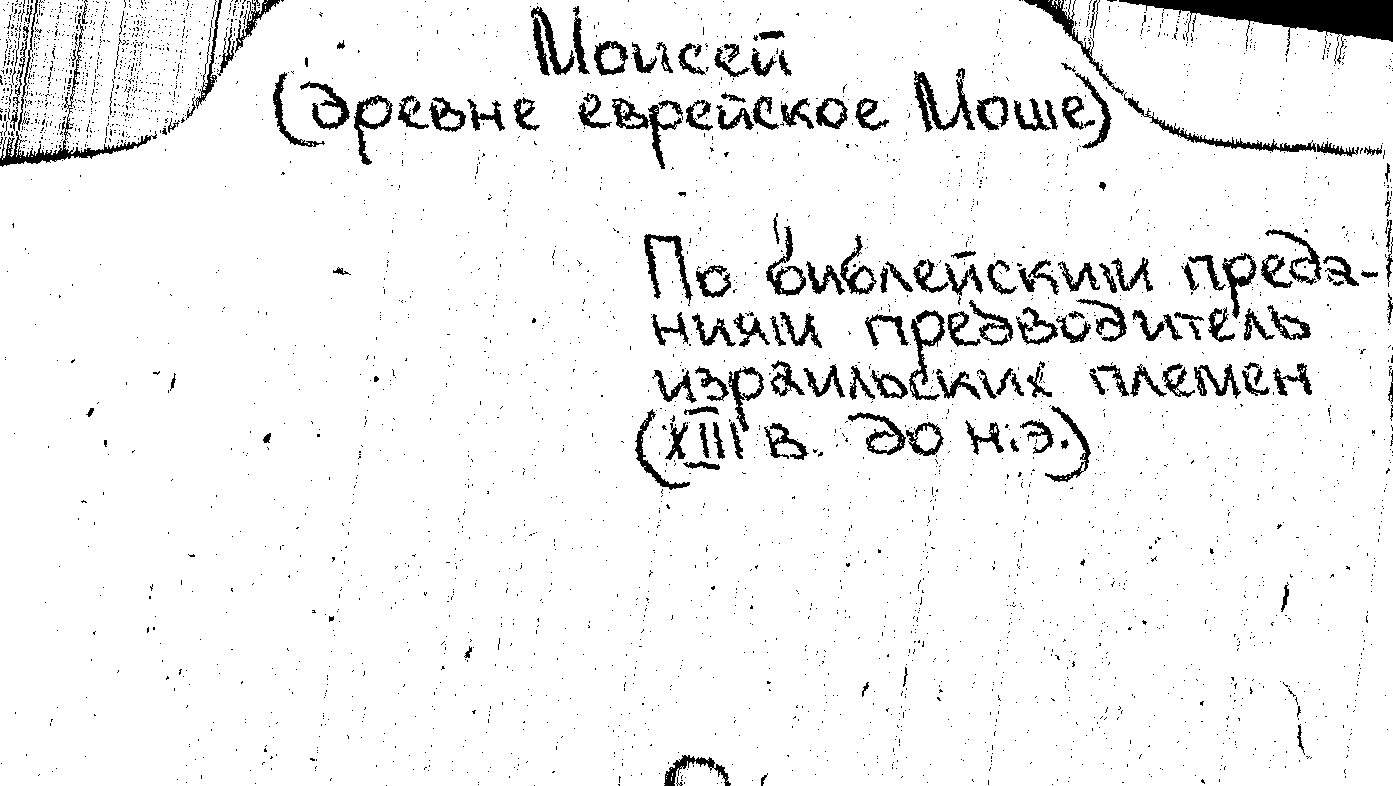 Моисей
(древне еврейское Моше)
По библейским преда-
ниям предводитель
израильских племен
(XIII в. до н.э.)